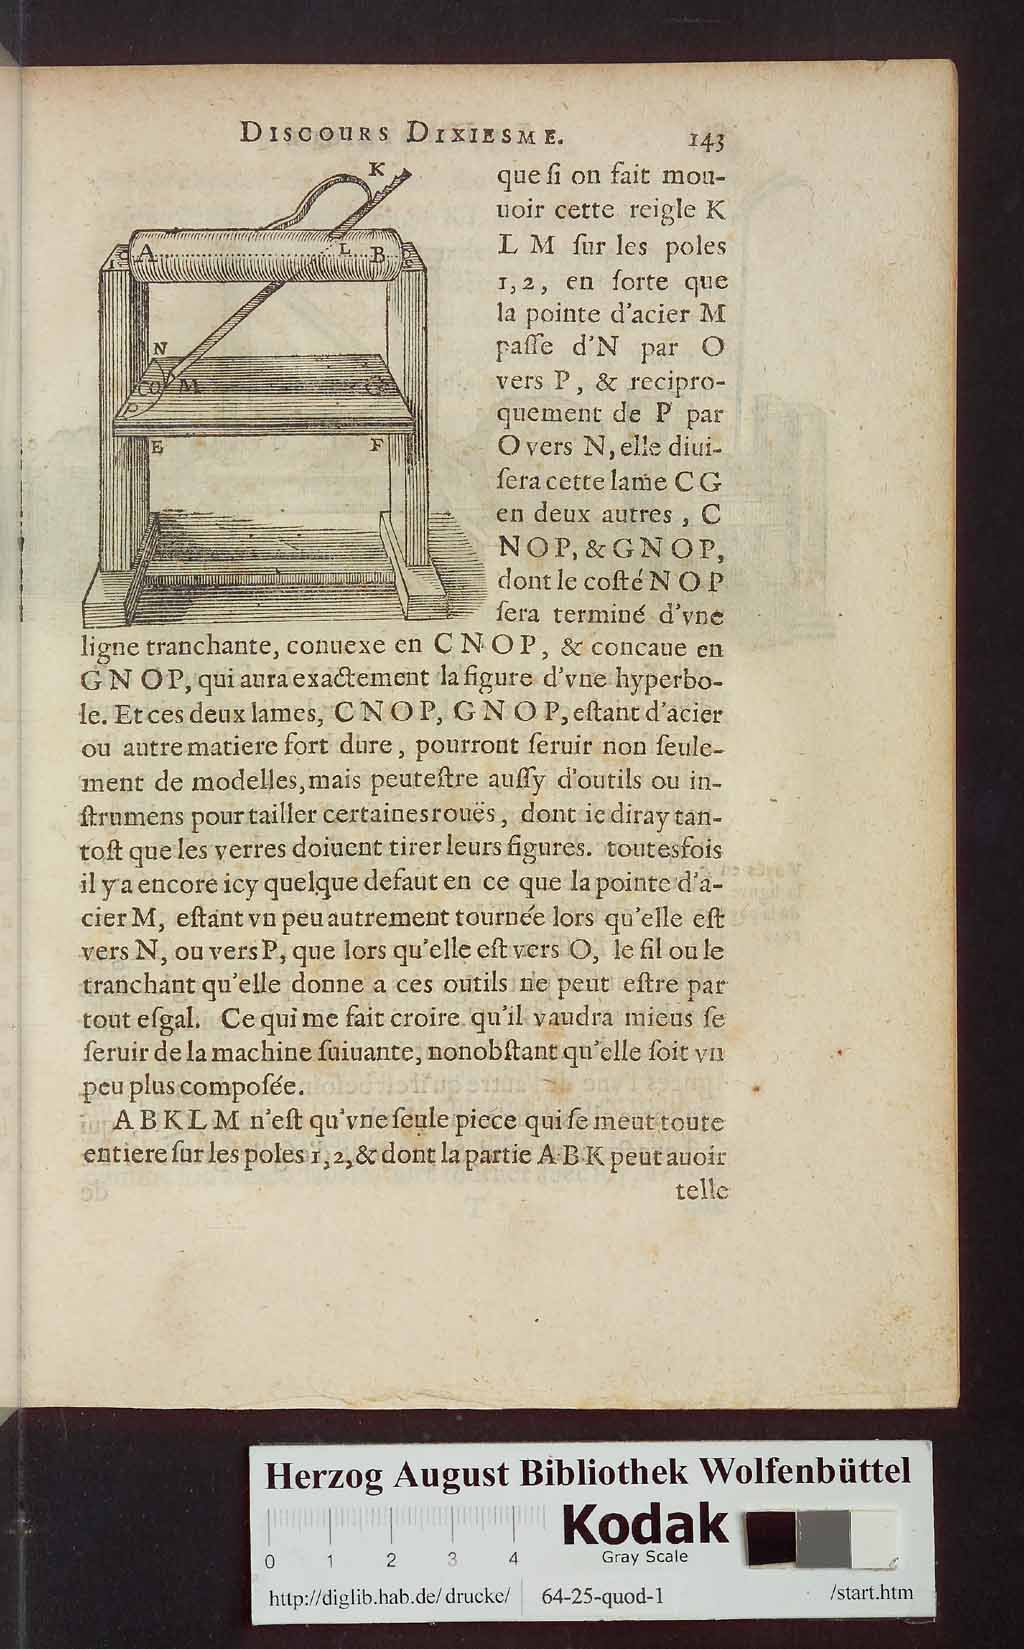 DISCOURS DIXIESME. 143
que ſi on fait mou-
uoir cette reigle K
L M ſur les poles
1, 2, en ſorte que
la pointe d'acier M
paſſe d'N par O
vers P, & recipro-
quement de P par
O vers N, elle diui-
ſera cette lame C G
en deux autres, C
N O P, & G N O P,
dont le coſté N O P
ſera terminé d'vne
ligne tranchante, conuexe en C N O P, & concaue en
G N O P, qui aura exactement la figure d'vne hyperbo-
le. Et ces deux lames, C N O P, G N O P, eſtant d'acier
ou autre matiere fort dure, pourront ſeruir non ſeule-
ment de modelles, mais peuteſtre auſſy d'outils ou in-
ſtrumens pour tailler certaines rouës, dont ie diray tan-
toſt que les verres doiuent tirer leurs figures. toutesfois
il y a encore icy quelque defaut en ce que la pointe d'a-
cier M, eſtant vn peu autrement tournée lors qu'elle eſt
vers N, ou vers P, que lors qu'elle eſt vers O, le fil ou le
tranchant qu'elle donne a ces outils ne peut eſtre par
tout eſgal. Ce qui me fait croire qu'il vaudra mieus ſe
ſeruir de la machine ſuiuante, nonobſtant qu'elle ſoit vn
peu plus compoſée.
A B K L M n'eſt qu'vne ſeule piece qui ſe meut toute
entiere ſur les poles 1, 2, & dont la partie A B K peut auoir
telle
K
A L B
1 2
N
C O M G
P
E F
Herzog August Bibliothek Wolfenbüttel
Kodak
Gray Scale
0 1 2 3 4
http://diglib.hab.de/drucke/ 64-25-quod-1 /start.htm